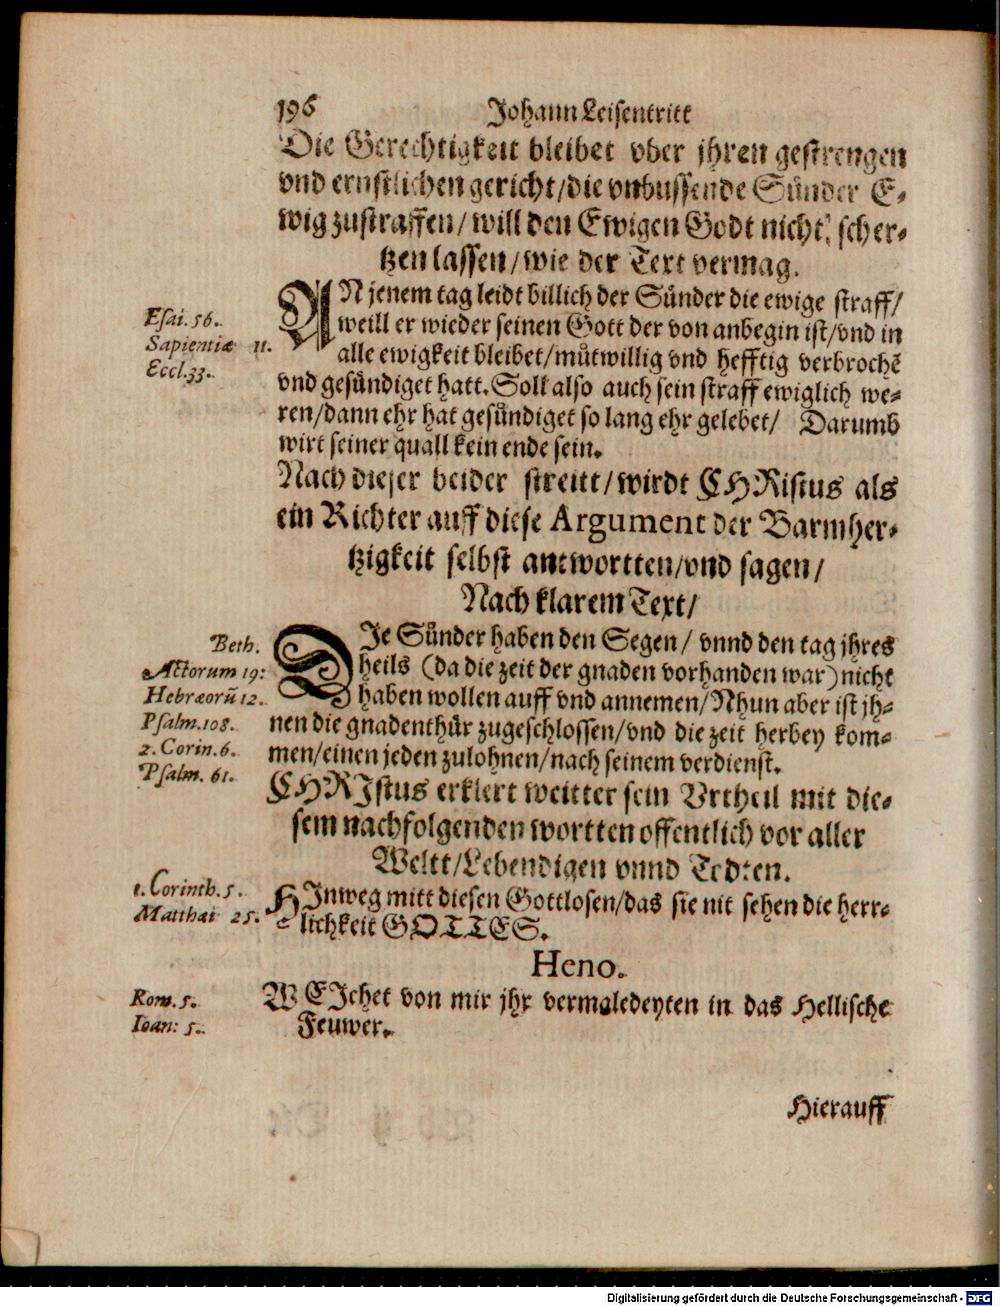 196 Johann Leisentritt
Die Gerechtigkeit bleibet vber jhren gestrengen
vnd ernstlichen gericht/die vnbussende Sünder E-
wig zustraffen/will den Ewigen Godt nicht scher-
tzen lassen/wie der Text vermag.
AN jenem tag leidt billich der Sünder die ewige straff/
Esai. 56.
weill er wieder seinen Gott der von anbegin ist/vnd in
Sapientiæ 11.
alle ewigkeit bleibet/můtwillig vnd hefftig verbrochẽ
Eccl.33.
vnd gesündiget hatt. Soll also auch sein straff ewiglich we-
ren/dann ehr hat gesündiget so lang ehr gelebet/ Darumb
wirt seiner quall kein ende sein.
Nach dieser beider streitt/wirdt CHRistus als
ein Richter auff diese Argument der Barmher-
tzigkeit selbst antwortten/vnd sagen/
Nach klarem Text/
DJe Sünder haben den Segen/ vnnd den tag jhres
Beth.
heils (da die zeit der gnaden vorhanden war) nicht
Actorum 19:
haben wollen auff vnd annemen/Nhun aber ist jh-
Hebræorũ 12.
nen die gnadenthür zugeschlossen/vnd die zeit herbey kom-
Psalm.108.
men/einen jeden zulohnen/nach seinem verdienst.
2. Corin. 6.
Psalm. 61.
CHRJstus erklert weitter sein Vrtheil mit die-
sem nachfolgenden wortten offentlich vor aller
Weltt/Lebendigen vnnd Todten.
HJnweg mitt diesen Gottlosen/das sie nit sehen die herr-
1. Corinth. 5.
lichkeit GOTTES.
Matthæi 25.
Heno.
WEJchet von mir jhr vermaledeyten in das Hellische
Rom. 5.
Feuwer.
Ioan: 5.
Hierauff
Digitalisierung gefördert durch die Deutsche Forschungsgemeinschaft - DFG